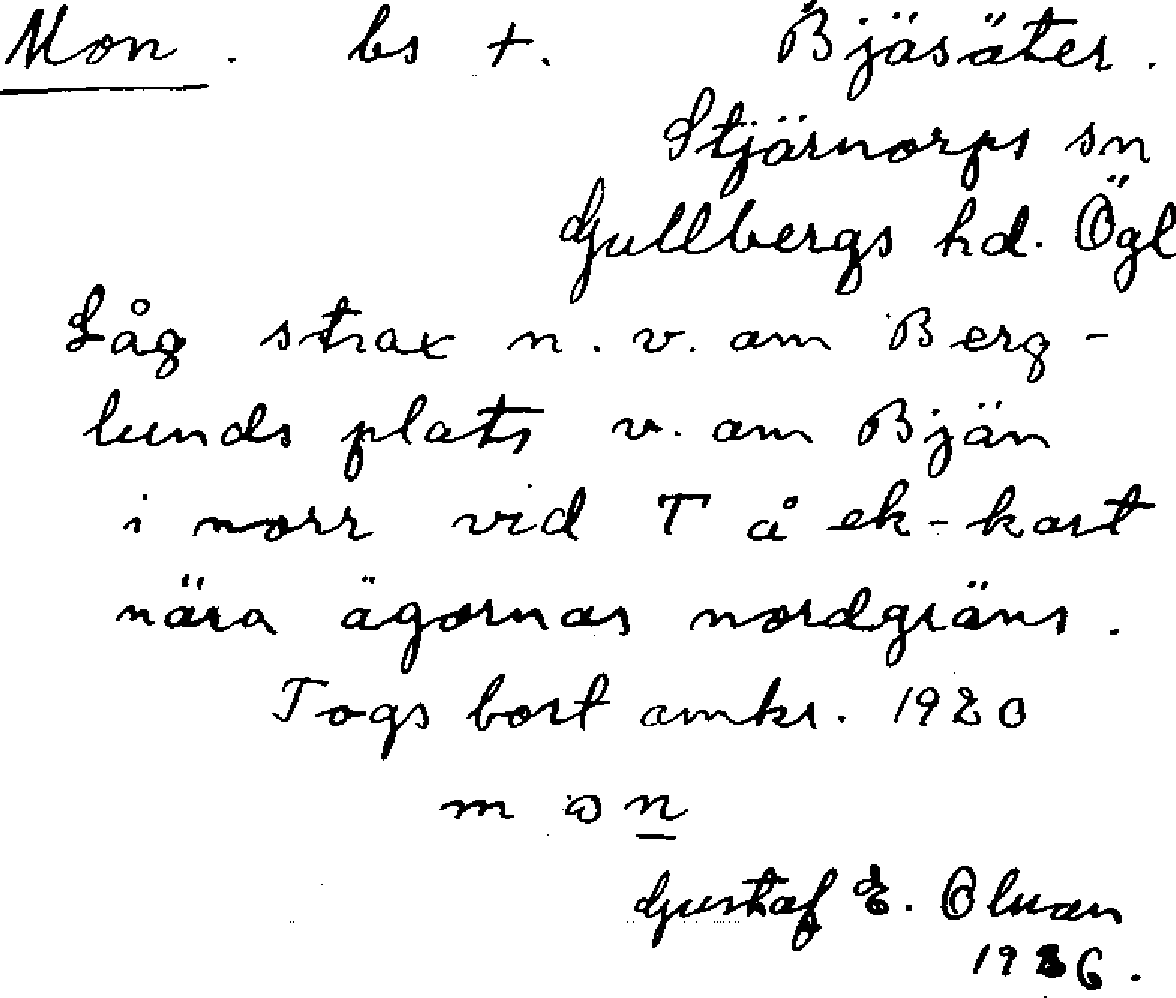 Mon. bs +. Bjäsäter.
Stjärnorps sn
Gullbergs hd. Ögl
Låg strax n. v. om Berg-
lunds plats v. om Bjän
i norr vid T å ek-kart
nära ägornas nordgräns.
Togs bort omkr. 1920
m o n
Gustaf E. Olsson
1926.